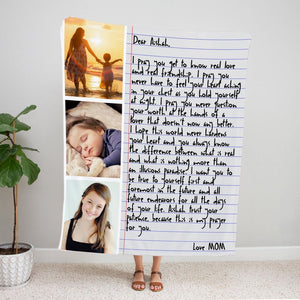 Dear Aishah,
I pray you get to know real love
and real friendship. I pray you
never have to feel your heart aching
in your chest as you hold yourself
at night. I pray you never question
your worth at the hands of a
lover that doesn't now any better.
I hope this world never hardens
your heart and you always know
the difference between what is real
and what is nothing more than
an illusions paradise. I want you to
be true to yourself first and
foremost in the future and all
future endeavors for all the days
of your life. Aishah trust your
patience, because this is my prayer
for you.
Love MOM